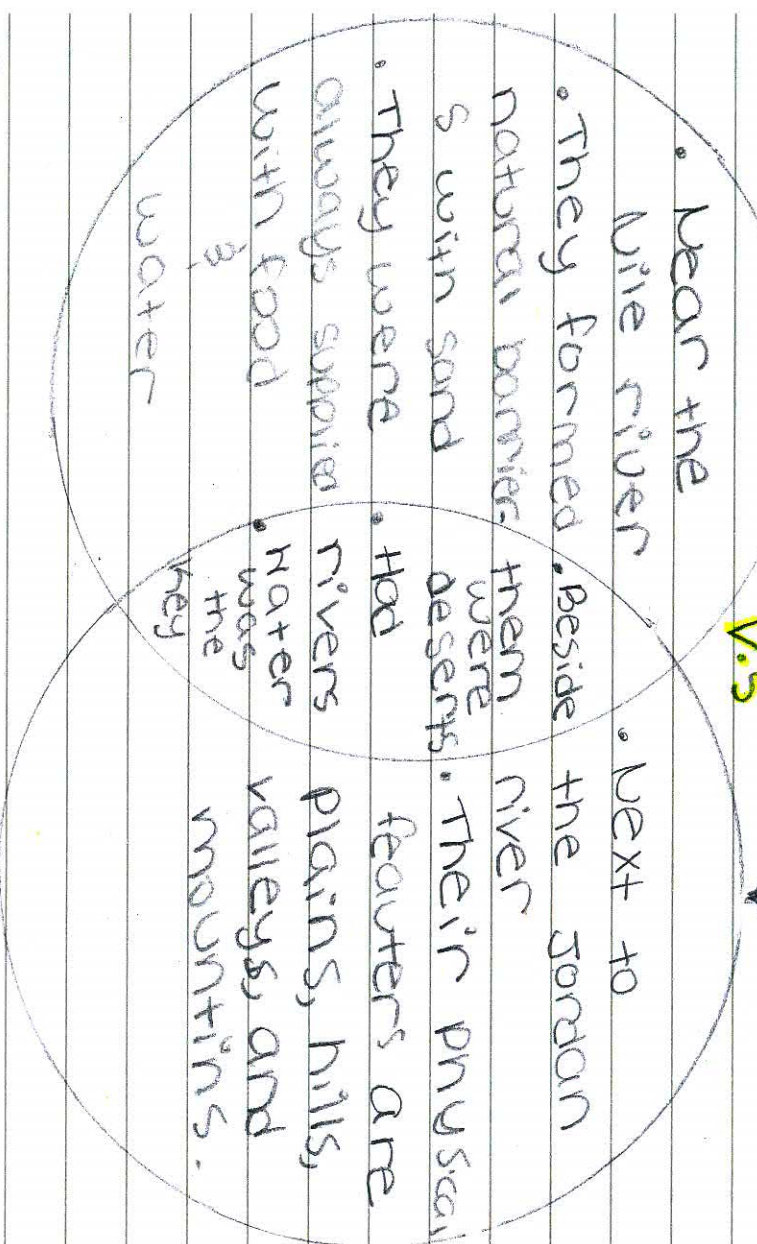 V.S
• Near the
Nile river
• They formed
natural barrier
s with sand
• They were
always supplied
with food
&
water
• Beside
them
were
deserts
• Had
rivers
• Water
was
the
key
• Next to
the Jordan
river
• Their physical
feauters are
plains, hills,
valleys, and
mountins.